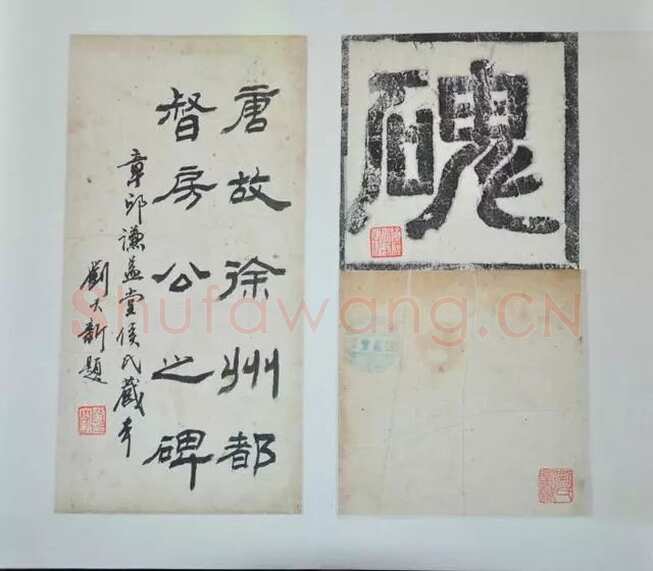 磈
唐故徐州都
督房公之碑
章邱謙益堂侯氏藏本
劉大新題
Shufawang.CN